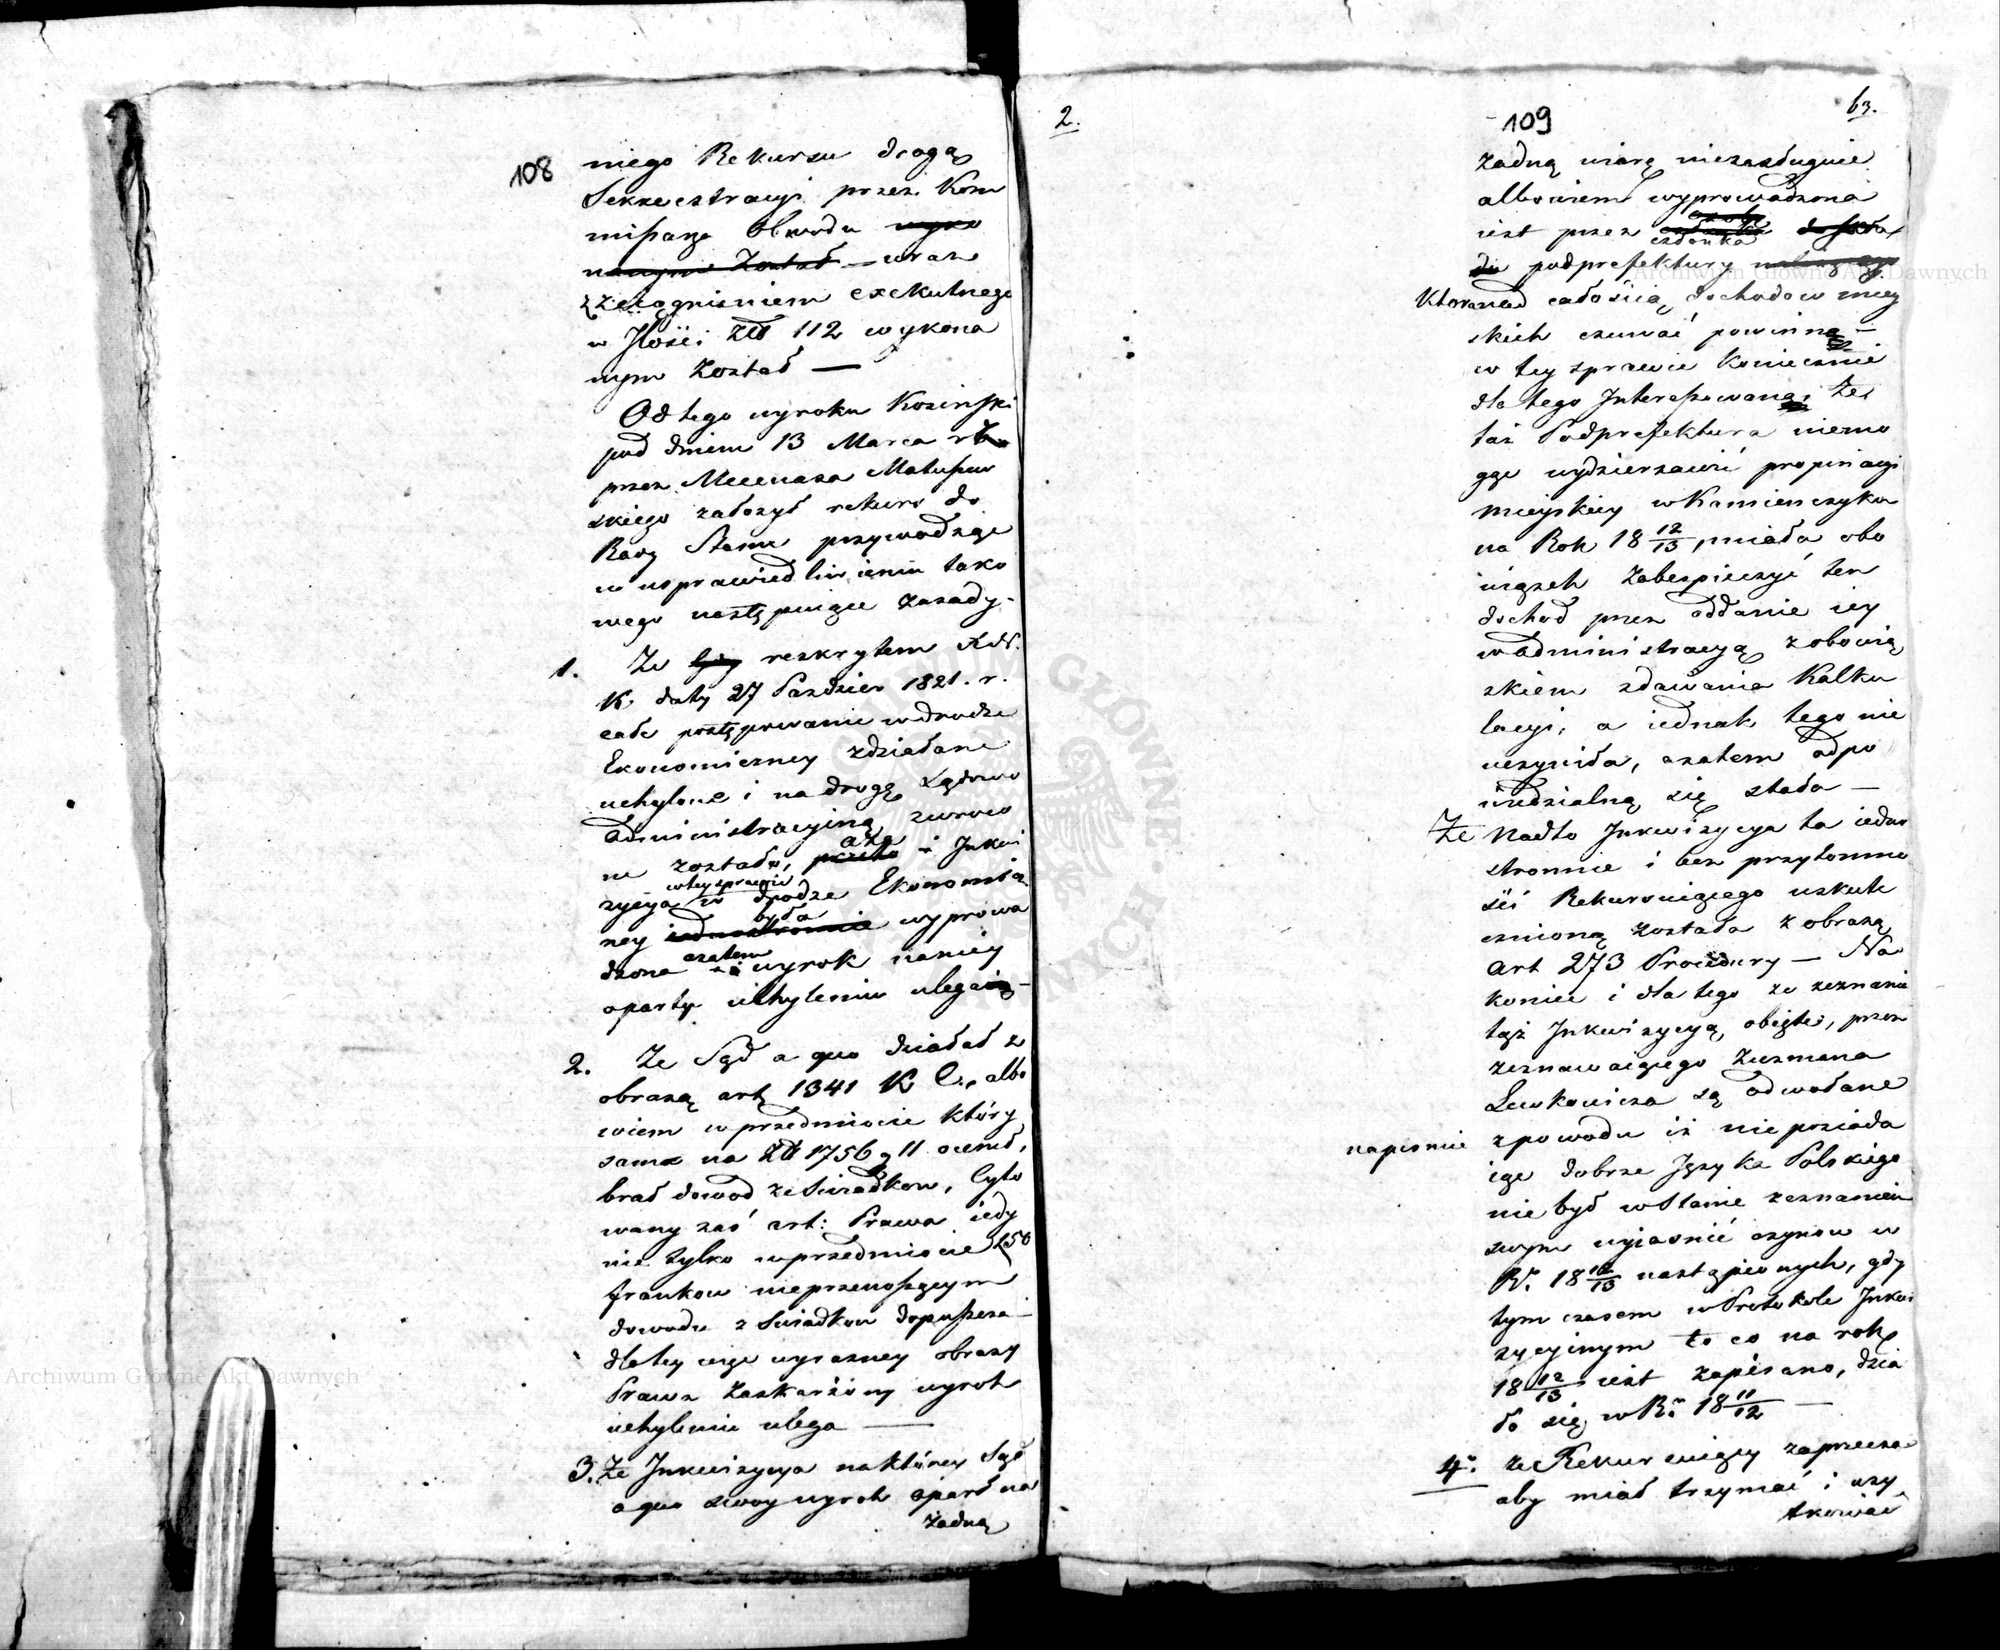 108
niego Rekursu drogą
Sekwestracyi przez Kom
mißarza Obwodu
wraz
z zciągnieniem exekutnego
w Jlości Złł 112 wykona
nym został —
Od tego wyroku Kosinski
pod dniem 13 Marca
przez Mecenasa Matuszew
skiego założył rekurs do
Rady Stanu przywodząc
w usprawiedliwieniu tako
wego następuiące zasady.
1. Ze reskrytem
K. daty 27 Paździer 1821. r.
całe postępowanie w drodze
Ekonomiczney zdziałane
uchylone i na drogę Sądowo
administracyiną zwroco
ne zostało, a że i Jnkwi
zycya w tey sprawie w drodze Ekonomicz
ney była wyprowa
dzona a zatem i wyrok na niey
oparty uchyleniu ulega —
2. Ze Sąd a quo działał z
obrazą art 1341 K C., albo
wiem w przedmiocie który
sam na Złł 1756 g 11 ocenił,
brał dowod ze Swiadkow, Cyto
wany zaś art: Prawa iedy
nie tylko w przedmiocie 150
frankow nieprzenoszącym
dowodu z Swiadkow dopuszcza —
dla tey więc wyrazney obrazy
Prawa zaskarżony wyrok
uchyleniu ulega —
3. Ze Jnkwizycya na którey Sąd
a quo swoy wyrok oparł na
żadną
2.
109
63.
żadną wiarę niezasługuie
albowiem wyprowadzona
iest przez członka
podprefektury
Ktora nad całością dochodow miey
skich czuwać powinna —
w tey sprawie koniecznie
dla tego Jnteresowana, że
taż Podprefektura niemo
gąc wydzierzawić propinacyi
mieyskiey w Kamienczyku
na Rok 18 12/13, miała obo
wiązek zabespieczyć ten
dochod przez oddanie iey
w administracyą z obowią
zkiem zdawania Kalku
lacyi, a iednak tego nie
uczyniła, a zatem odpo
wiedzialną się stała —
Że nadto Jnkwizycya ta iedno
stronnie i bez przytomno
ści Rekurruiącego uskute
cznioną została z obrazą
art 273 Procedury — Na
koniec i dla tego ze zeznania
tąż Jnkwizycyą obięte, przez
zeznawaiącego Zuzmana
Lewkowicza są odwołane
napismie z powodu iż nie posiada
iąc dobrze Języka Polskiego
nie był w Stanie zeznaniem
swym wyiasnić czynow w
R. 18 12/13 nastąpionych, gdy
tym czasem w Protokole Jnkwi
zycyinym to co na rok
18 12/13 iest zapisano, dzia
ło się w R. 18 11/12 —
4. ze Rekurruiący zaprzecza
aby miał trzymać i uży
tkować
Archiwum Główne Akt Dawnych
Archiwum Główne Akt Dawnych